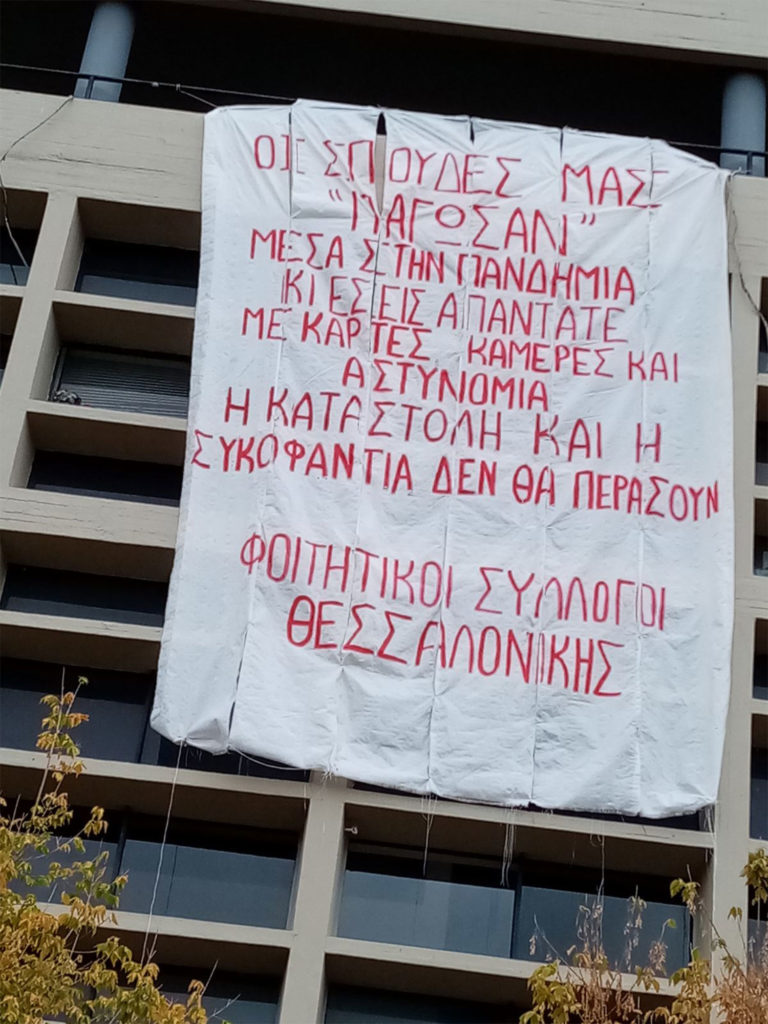 ΟΙ ΣΠΟΥΔΕΣ ΜΑΣ
"ΠΑΓΩΣΑΝ"
ΜΕΣΑ ΣΤΗΝ ΠΑΝΔΗΜΙΑ
ΚΙ ΕΣΕΙΣ ΑΠΑΝΤΑΤΕ
ΜΕ ΚΑΡΤΕΣ ΚΑΜΕΡΕΣ ΚΑΙ
ΑΣΤΥΝΟΜΙΑ
Η ΚΑΤΑΣΤΟΛΗ ΚΑΙ Η
ΣΥΚΟΦΑΝΤΙΑ ΔΕΝ ΘΑ ΠΕΡΑΣΟΥΝ
ΦΟΙΤΗΤΙΚΟΙ ΣΥΛΛΟΓΟΙ
ΘΕΣΣΑΛΟΝΙΚΗΣ